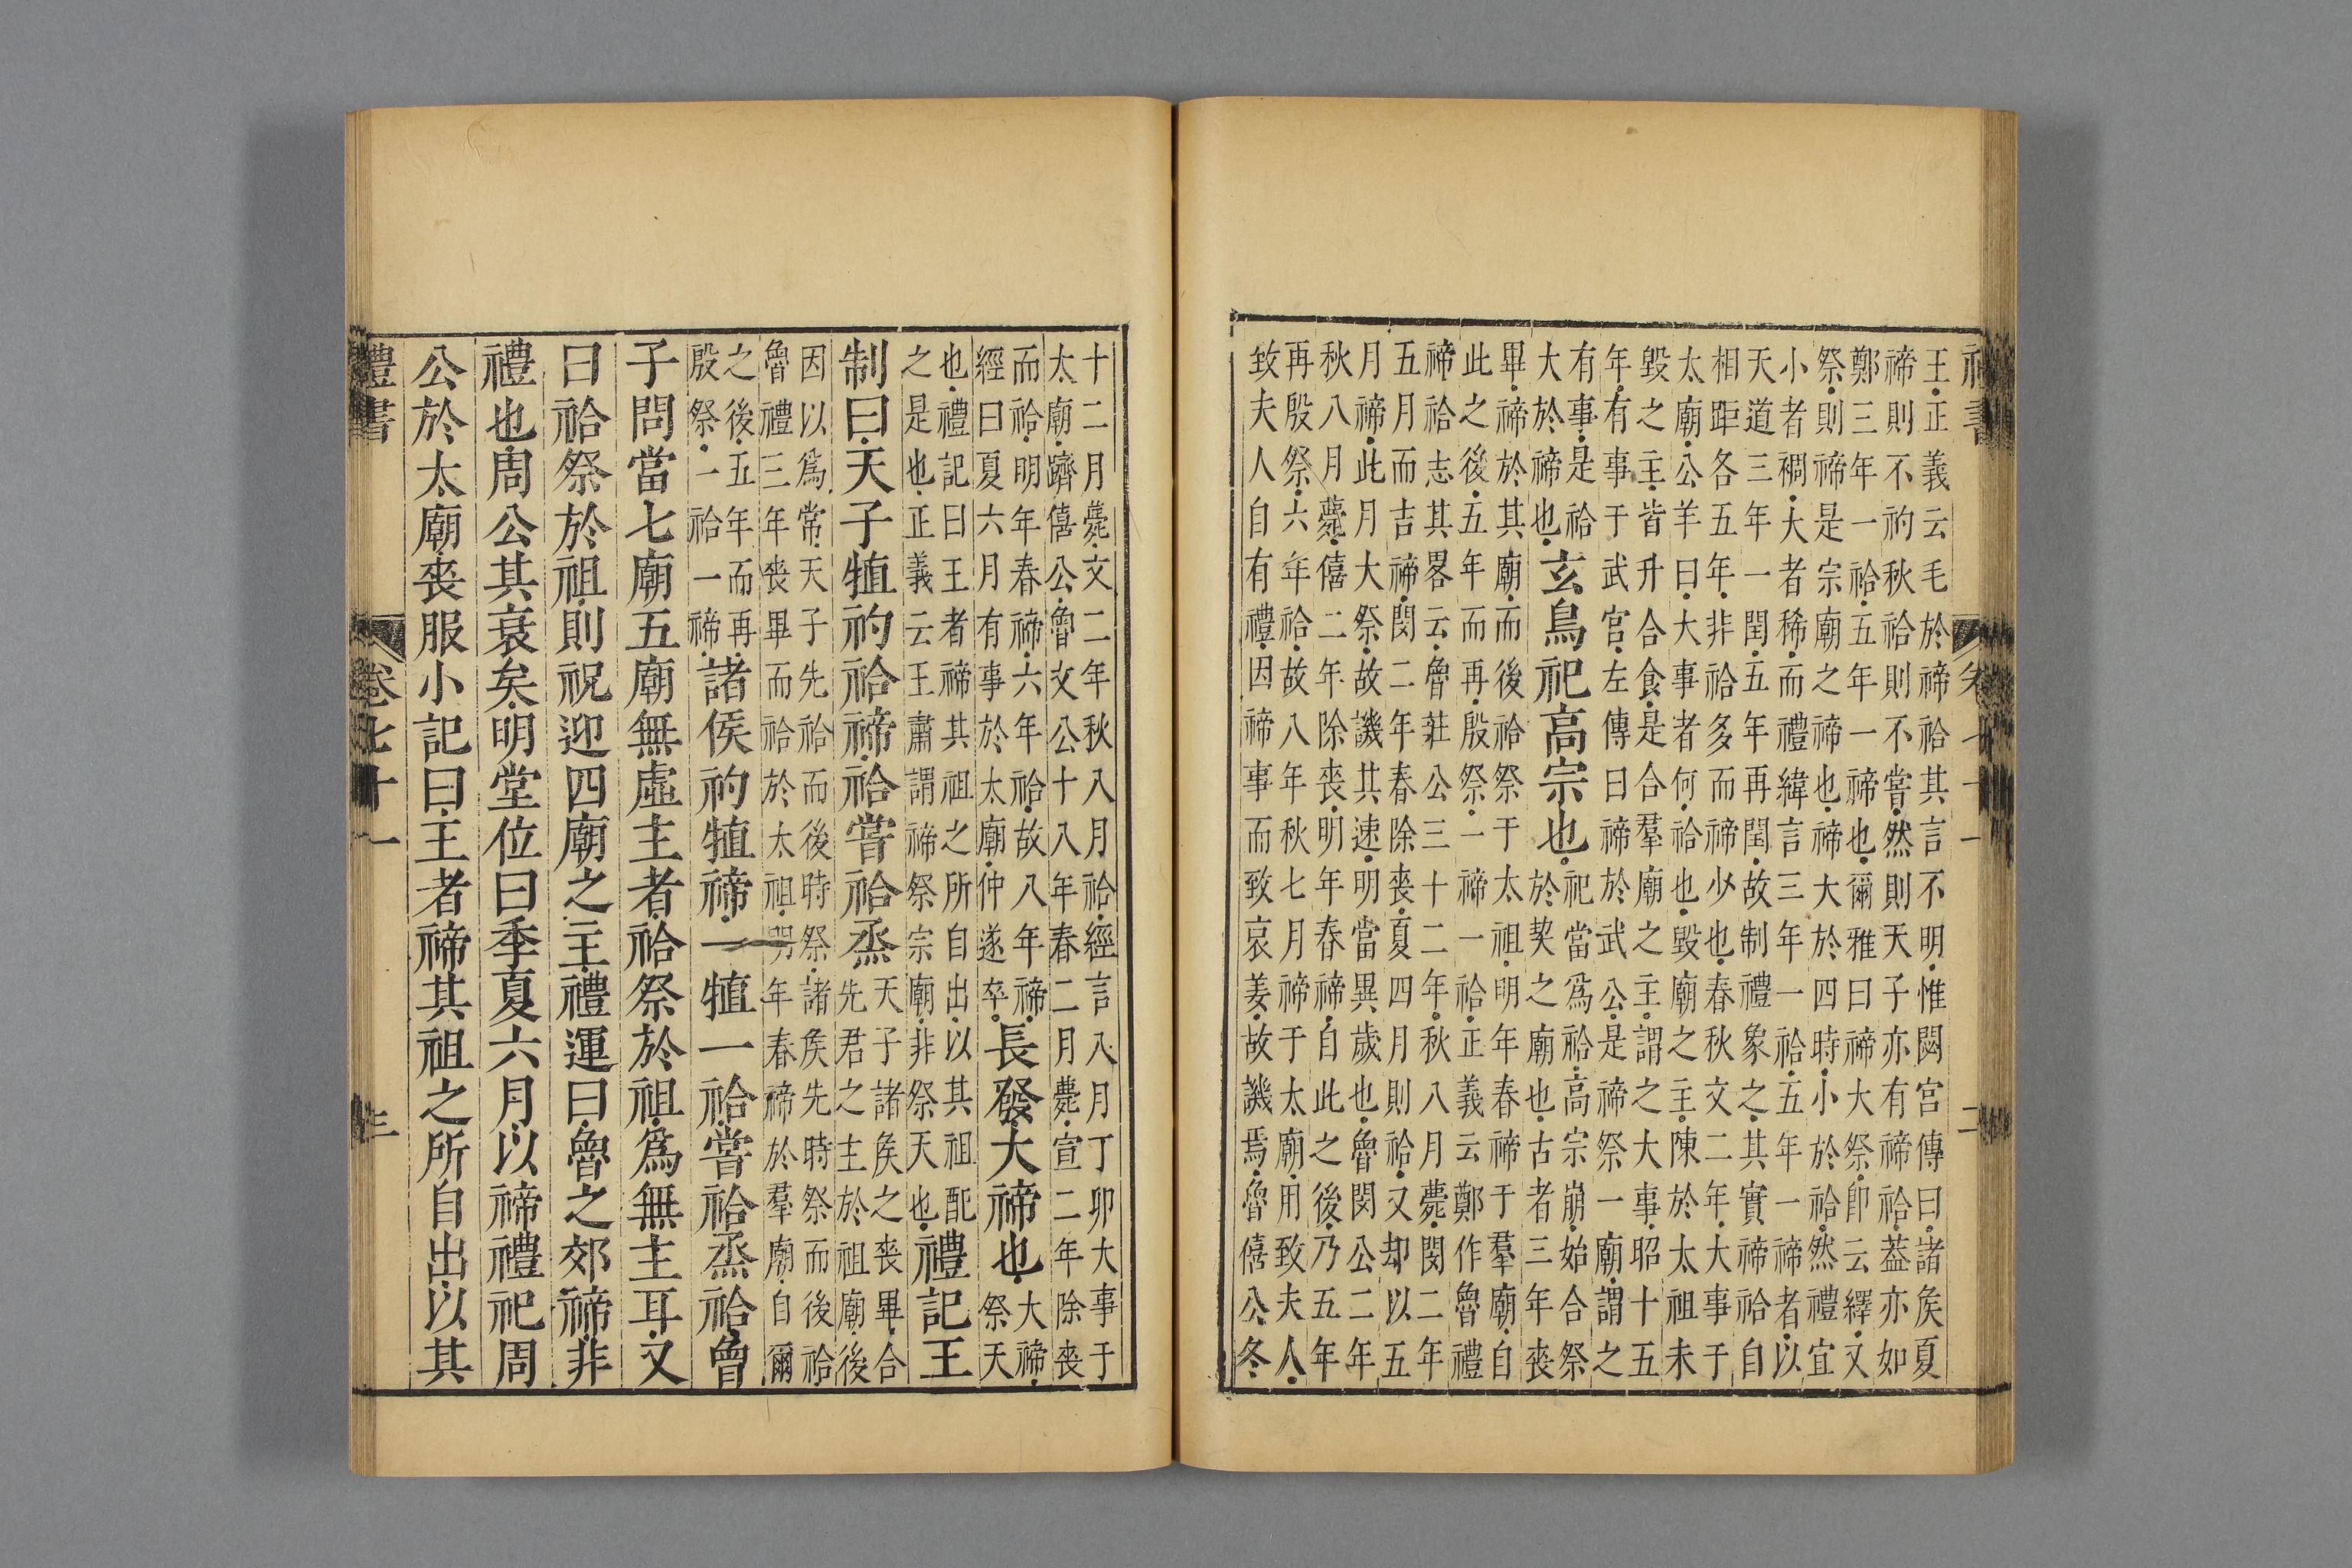 王正義云毛於禘祫其言不明惟閟宮傳曰諸矦夏
禘則不礿秋祫則不嘗然則天子亦有禘祫葢亦如
鄭三年一祫五年一禘也爾雅曰禘大祭卽云繹又
祭則禘是宗廟之禘也禘大於四時小於祫然禮宜
小者稠大者稀而禮緯言三年一祫五年一禘者以
天道三年一閏五年再閏故制禮象之其實禘祫自
相距各五年非祫多而禘少也春秋文二年大事于
太廟公羊曰大事者何祫也毀廟之主陳於太祖未
毀之主皆升合食是合羣廟之主謂之大事昭十五
年有事于武宮左傳曰禘於武公是禘祭一廟謂之
有事是祫
大於禘也
玄鳥祀高宗也
祀當爲祫高宗崩始合祭
於契之廟也古者三年喪
畢禘於其廟而後祫祭于太祖明年春禘于羣廟自
此之後五年而再殷祭一禘一祫正義云鄭作魯禮
禘祫志其畧云魯莊公三十二年秋八月薨閔二年
五月而吉禘閔二年春除喪夏四月則祫又却以五
月禘此月大祭故譏其速明當異歲也魯閔公二年
秋八月薨僖二年除喪明年春禘自此之後乃五年
再殷祭六年祫故八年秋七月禘于太廟用致夫人
致夫人自有禮因禘事而致哀姜故譏焉魯僖公冬
十二月薨文二年秋八月祫經言八月丁卯大事于
太廟躋僖公魯文公十八年春二月薨宣二年除喪
而祫明年春禘六年祫故八年禘
經曰夏六月有事於太廟仲遂卒
長發大禘也
大禘
祭天
也禮記曰王者禘其祖之所自出以其祖配
之是也正義云王肅謂禘祭宗廟非祭天也
禮記王
制曰天子犆礿祫禘祫嘗祫烝
天子諸矦之喪畢合
先君之主於祖廟後
因以爲常天子先祫而後時祭諸矦先時祭而後祫
魯禮三年喪畢而祫於太祖明年春禘於羣廟自爾
之後五年而再
殷祭一祫一禘
諸侯礿犆禘一犆一祫嘗祫烝祫曾
子問當七廟五廟無虛主者祫祭於祖爲無主耳又
曰祫祭於祖則祝迎四廟之主禮運曰魯之郊禘非
禮也周公其衰矣明堂位曰季夏六月以禘禮祀周
公於太廟喪服小記曰王者禘其祖之所自出以其
禮書 卷七十一 三